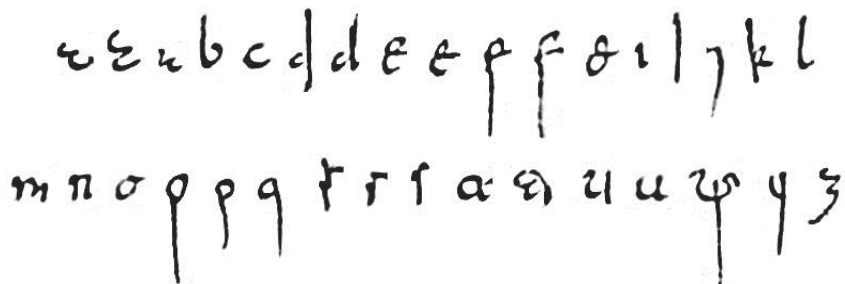 a a a b c d d e e f f g i i j k l
m n o p p q r r s t t u u x y z